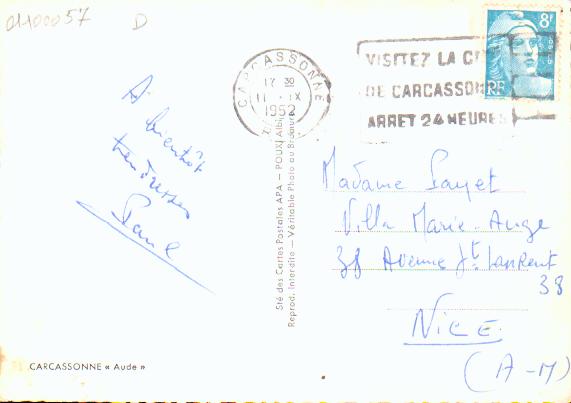 01100057 D
A
bientôt
tendresses
CARCASSONNE
17 30
11 IX
1952
VISITEZ LA CI
DE CARCASSONN
ARRET 24 HEURES
8F
RF
Madame Payet
Villa Marie-Ange
38 Avenue St. Laurent
38
NICE
(A-M)
Sté des Cartes Postales APA — POUX, Albi
Reprod. Interdite — Véritable Photo au Bromure
CARCASSONNE « Aude »